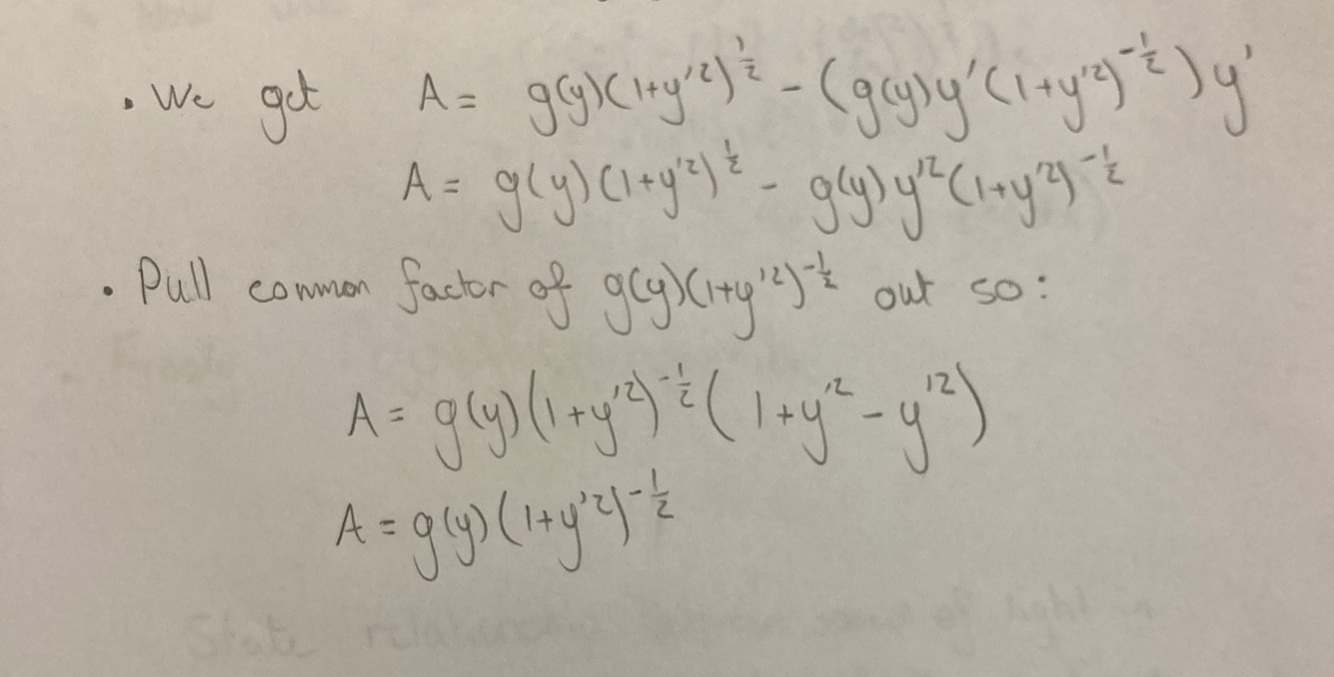 • We get A = g(y)(1+y'²)^½ - (g(y)y'(1+y'²)^-½)y'
A = g(y)(1+y'²)^½ - g(y)y'²(1+y'²)^-½
• Pull common factor of g(y)(1+y'²)^-½ out so:
A = g(y)(1+y'²)^-½(1+y'²-y'²)
A = g(y)(1+y'²)^-½
State relationship of light in